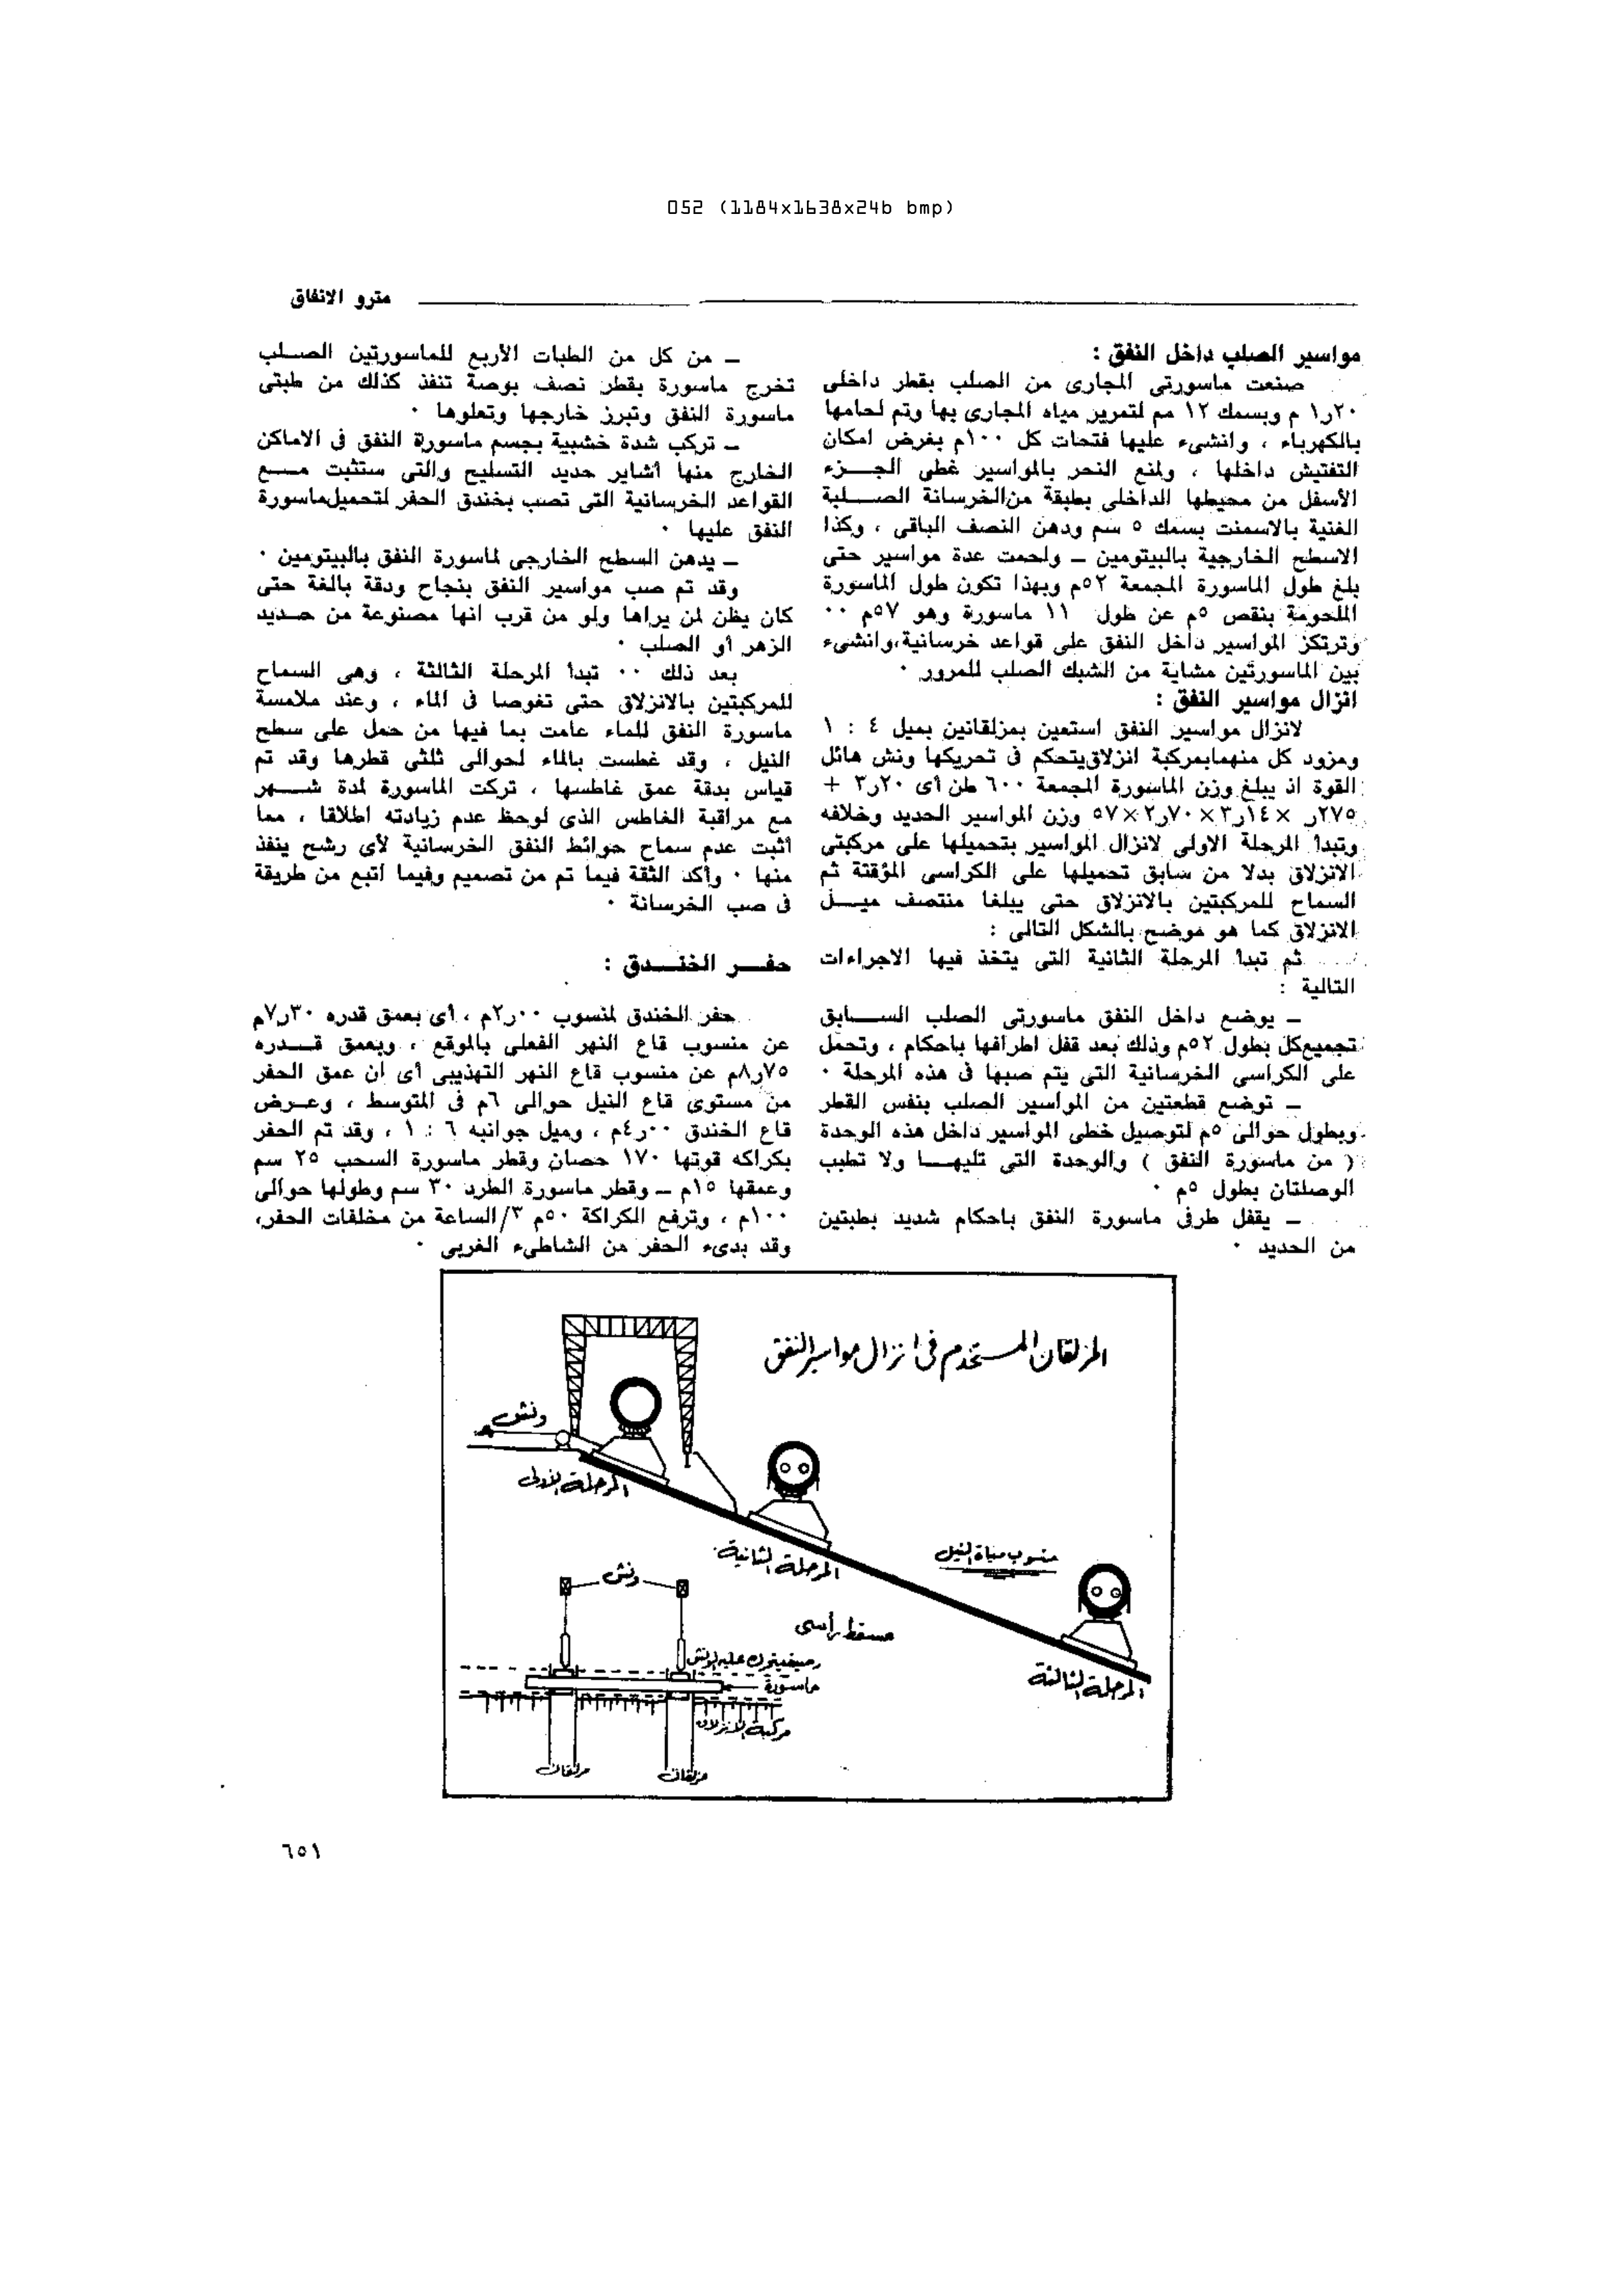 052 (1184x1638x24b bmp)
مترو الانفاق
مواسير الصلب داخل النفق :
صنعت ماسورتى المجارى من الصلب بقطر داخلى
٢٠ر١ م وبسمك ١٢ مم لتمرير مياه المجارى بها وتم لحامها
بالكهرباء ، وانشىء عليها فتحات كل ١٠٠م بغرض امكان
التفتيش داخلها ، ولمنع النحر بالمواسير غطى الجـــزء
الأسفل من محيطها الداخلى بطبقة من الخرسانة الصـــلبة
الغنية بالاسمنت بسمك ٥ سم ودهن النصف الباقى ، وكذا
الاسطح الخارجية بالبيتومين ــ ولحمت عدة مواسير حتى
بلغ طول الماسورة المجمعة ٥٢م وبهذا تكون طول الماسورة
الملحومة بنقص ٥م عن طول ١١ ماسورة وهو ٥٧م ٠٠
وترتكز المواسير داخل النفق على قواعد خرسانية،وانشىء
بين الماسورتين مشاية من الشبك الصلب للمرور ٠
انزال مواسير النفق :
لانزال مواسير النفق استعين بمزلقانين بميل ٤ : ١
ومزود كل منهمابمركبة انزلاق يتحكم فى تحريكها ونش هائل
القوة اذ يبلغ وزن الماسورة المجمعة ٦٠٠ طن أى ٢٠ر٣ +
٢٧٥ر ×١٤ر٣×٧٠ر٢×٥٧ وزن المواسير الحديد وخلافه
وتبدأ المرحلة الاولى لانزال المواسير بتحميلها على مركبتى
الانزلاق بدلا من سابق تحميلها على الكراسى المؤقتة ثم
السماح للمركبتين بالانزلاق حتى يبلغا منتصف ميـــل
الانزلاق كما هو موضح بالشكل التالى :
ثم تبدأ المرحلة الثانية التى يتخذ فيها الاجراءات
التالية :
ــ يوضع داخل النفق ماسورتى الصلب الســـابق
تجميع كل بطول ٥٢م وذلك بعد قفل اطرافها باحكام ، وتحمل
على الكراسى الخرسانية التى يتم صبها فى هذه المرحلة ٠
ــ توضع قطعتين من المواسير الصلب بنفس القطر
وبطول حوالى ٥م لتوصيل خطى المواسير داخل هذه الوحدة
( من ماسورة النفق ) والوحدة التى تليهـــا ولا تطبب
الوصلتان بطول ٥م ٠
ــ يقفل طرفى ماسورة النفق باحكام شديد بطبتين
من الحديد ٠
ــ من كل من الطبات الأربع للماسورتين الصــلب
تخرج ماسورة بقطر نصف بوصة تنفذ كذلك من طبتى
ماسورة النفق وتبرز خارجها وتعلوها ٠
ــ تركب شدة خشبية بجسم ماسورة النفق فى الاماكن
الخارج منها أشاير حديد التسليح والتى ستثبت مـــع
القواعد الخرسانية التى تصب بخندق الحفر لتحميل ماسورة
النفق عليها ٠
ــ يدهن السطح الخارجى لماسورة النفق بالبيتومين ٠
وقد تم صب مواسير النفق بنجاح ودقة بالغة حتى
كان يظن لمن يراها ولو من قرب انها مصنوعة من حــديد
الزهر أو الصلب ٠
بعد ذلك ٠٠ تبدأ المرحلة الثالثة ، وهى السماح
للمركبتين بالانزلاق حتى تغوصا فى الماء ، وعند ملامسة
ماسورة النفق للماء عامت بما فيها من حمل على سطح
النيل ، وقد غطست بالماء لحوالى ثلثى قطرها وقد تم
قياس بدقة عمق غاطسها ، تركت الماسورة لمدة شـــهر
مع مراقبة الغاطس الذى لوحظ عدم زيادته اطلاقا ، مما
أثبت عدم سماح حوائط النفق الخرسانية لأى رشح ينفذ
منها ٠ وأكد الثقة فيما تم من تصميم وفيما اتبع من طريقة
فى صب الخرسانة ٠
حفــر الخنــدق :
حفر الخندق لمنسوب ٠٠ر٢م ، أى بعمق قدره ٣٠ر٧م
عن منسوب قاع النهر الفعلى بالموقع ، وبعمق قــدره
٧٥ر٨م عن منسوب قاع النهر التهذيبى أى ان عمق الحفر
من مستوى قاع النيل حوالى ٦م فى المتوسط ، وعــرض
قاع الخندق ٠٠ر٤م ، وميل جوانبه ٦ : ١ ، وقد تم الحفر
بكراكه قوتها ١٧٠ حصان وقطر ماسورة السحب ٢٥ سم
وعمقها ١٥م ــ وقطر ماسورة الطرد ٣٠ سم وطولها حوالى
١٠٠م ، وترفع الكراكة ٥٠م ٣/الساعة من مخلفات الحفر،
وقد بدىء الحفر من الشاطىء الغربى ٠
المزلقان المستخدم فى انزال مواسير النفق
ونش
المرحلة الأولى
المرحلة الثانية
منسوب مياة النيل
المرحلة الثالثة
ونش
مسقط رأسى
رصيف يتحرك عليه الونش
ماسورة
مركبة الانزلاق
مزلقان
مزلقان
٦٥١